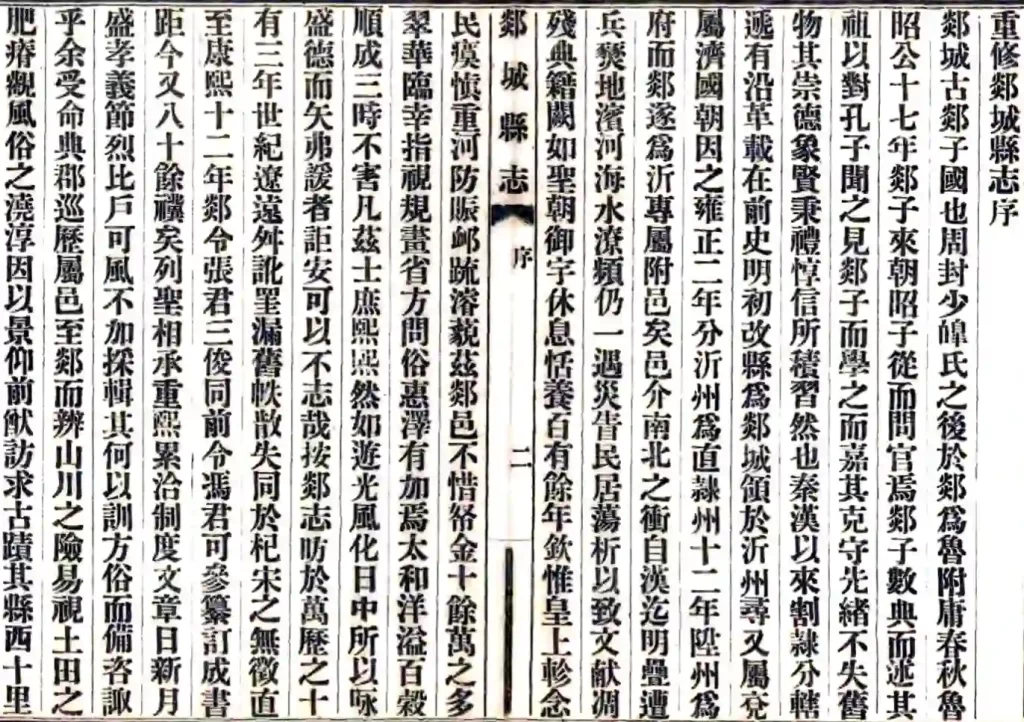 重修郯城縣志序
郯城古郯子國也周封少皥氏之後於郯爲魯附庸春秋魯
昭公十七年郯子來朝昭子從而問官焉郯子數典而述其
祖以對孔子聞之見郯子而學之而嘉其克守先緒不失舊
物其崇德象賢秉禮惇信所積習然也秦漢以來割隸分轄
遞有沿革載在前史明初改縣爲郯城領於沂州尋又屬兗
屬濟國朝因之雍正二年分沂州爲直隸州十二年陞州爲
府而郯遂爲沂專屬附邑矣邑介南北之衝自漢迄明疊遭
兵燹地濱河海水潦頻仍一遇災眚民居蕩析以致文献凋
殘典籍闕如聖朝御宇休息恬養百有餘年欽惟皇上軫念
郯城縣志 序 二
民瘼慎重河防賑邮疏濬藐茲郯邑不惜帑金十餘萬之多
翠華臨幸指視規畫省方問俗惠澤有加焉太和洋溢百穀
順成三時不害凡茲士庶熙熙然如遊光風化日中所以咏
盛德而矢弗諼者詎安可以不志哉按郯志昉於萬歷之十
有三年世紀遼遠舛訛罣漏舊帙散失同於杞宋之無徵直
至康熙十二年郯令張君三俊同前令馮君可參纂訂成書
距今又八十餘禩矣列聖相承重熙累洽制度文章日新月
盛孝義節烈比戶可風不加採輯其何以訓方俗而備咨諏
乎余受命典郡巡歷屬邑至郯而辨山川之險易視土田之
肥瘠觀風俗之澆淳因以景仰前猷訪求古蹟其縣西十里